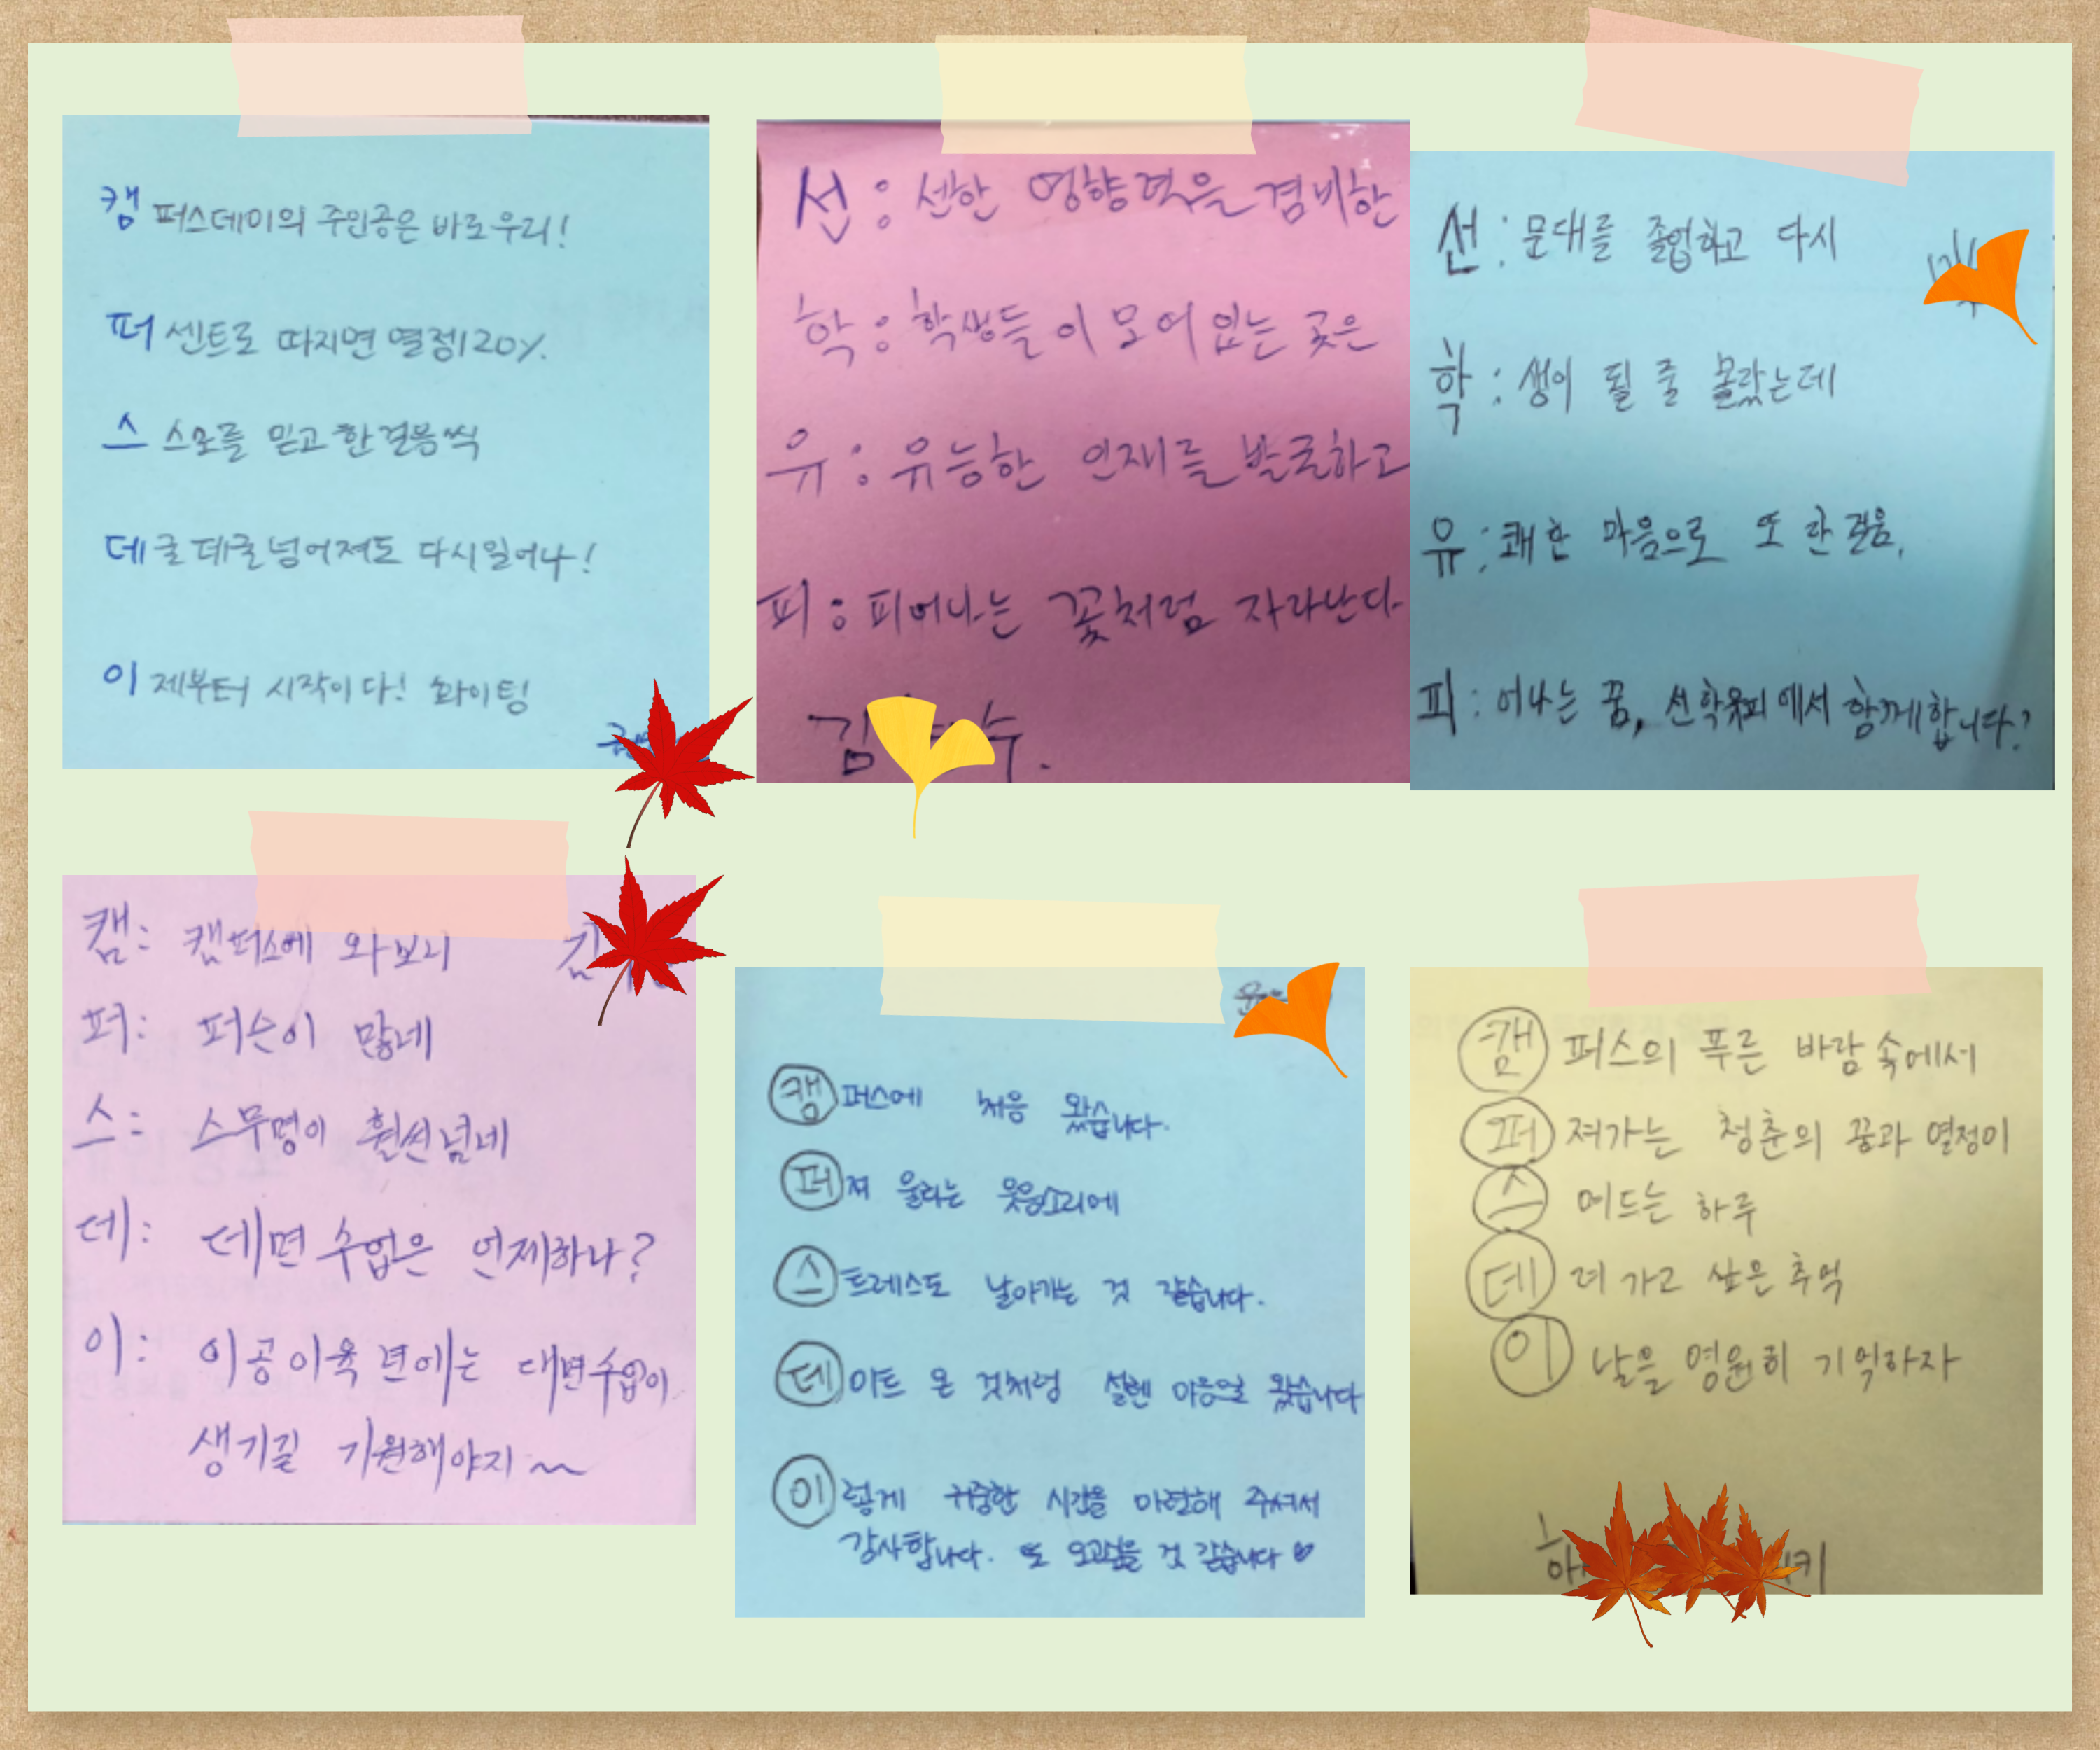 캠퍼스데이의 주인공은 바로 우리!
퍼센트로 따지면 열정120%.
스스로를 믿고 한걸음씩
데굴데굴 넘어져도 다시일어나!
이제부터 시작이다! 화이팅
선: 선한 영향력을 겸비한
학: 학생들이 모여있는 곳은
유: 유능한 인재를 발굴하고
피: 피어나는 꽃처럼 자라난다
선: 문대를 졸업하고 다시
학: 생이 될 줄 몰랐는데
유: 쾌한 마음으로 또 한 걸음,
피: 어나는 꿈, 선학유피에서 함께합니다?
캠: 캠퍼스에 와보니
퍼: 퍼슨이 많네
스: 스무명이 훨씬넘네
데: 데면 수업은 언제하나?
이: 이공이육 년에는 대면수업이
생기길 기원해야지~
캠퍼스에 처음 왔습니다.
퍼져 울리는 웃음소리에
스트레스도 날아가는 것 같습니다.
데이트 온 것처럼 설렌 마음으로 왔습니다
이렇게 귀중한 시간을 마련해 주셔서
감사합니다. 또 오고싶을 것 같습니다♡
캠퍼스의 푸른 바람 속에서
퍼져가는 청춘의 꿈과 열정이
스며드는 하루
데려가고 싶은 추억
이 날을 영원히 기억하자